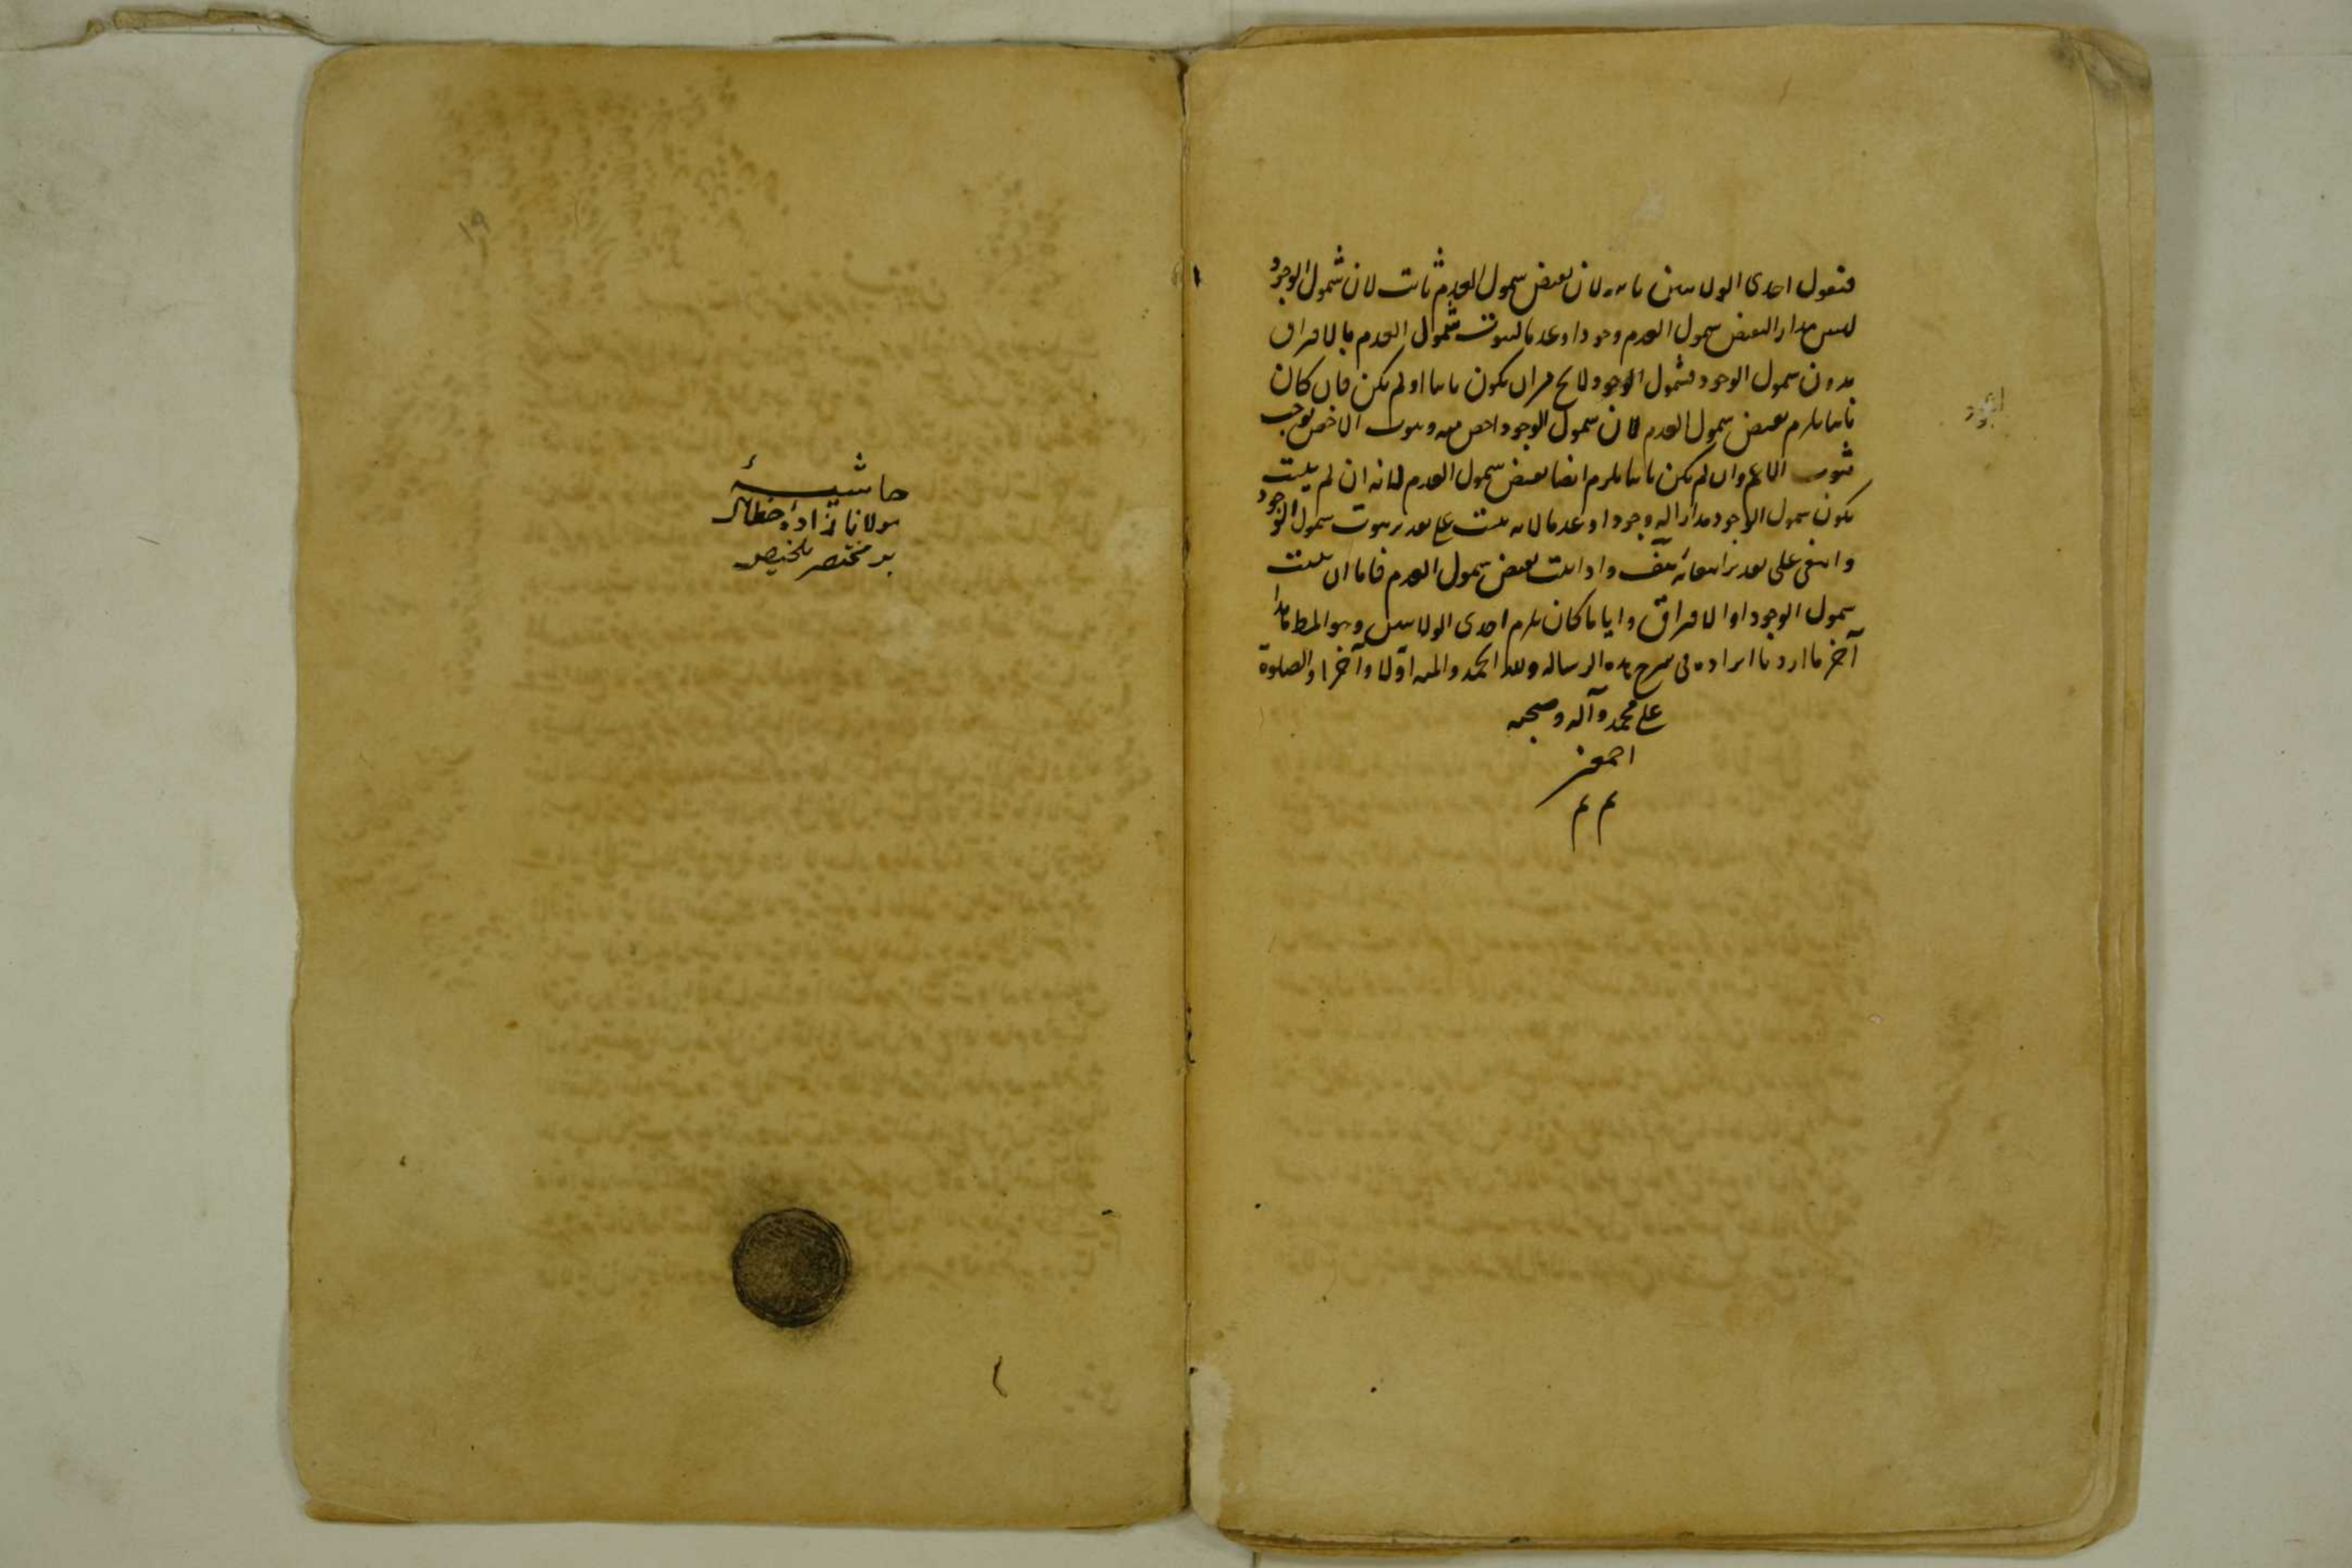 فنقول احدى الولايتين ثابتة لان نقيض شمول العدم ثابت لان شمول الوجود
ليس مدار النقيض شمول العدم وجودا وعدما لثبوت شمول العدم بالافتراق
بدون شمول الوجود فشمول الوجود لا يخ من ان يكون ثابتا او لم يكن فان كان
ثابتا يلزم نقيض شمول العدم لان شمول الوجود اخص منه وثبوت الاخص يوجب
ثبوت الاعم وان لم يكن ثابتا يلزم ايضا نقيض شمول العدم لانه ان لم يثبت
يكون شمول الوجود مدارا له وجودا وعدما لانه يثبت على تقدير ثبوت شمول الوجود
وانتفى على تقدير انتفائه هف واذا ثبت نقيض شمول العدم فاما ان يثبت
شمول الوجود او الافتراق وايا ما كان يلزم احدى الولايتين وهو المط هذا
آخر ما اردنا ايراده فى شرح هذه الرساله ولله الحمد والمنه اولا وآخرا والصلوة
على محمد وآله وصحبه
اجمعين
م م
حاشيۀ
مولانا زاده خطائى
بر مختصر تلخيص
١٩